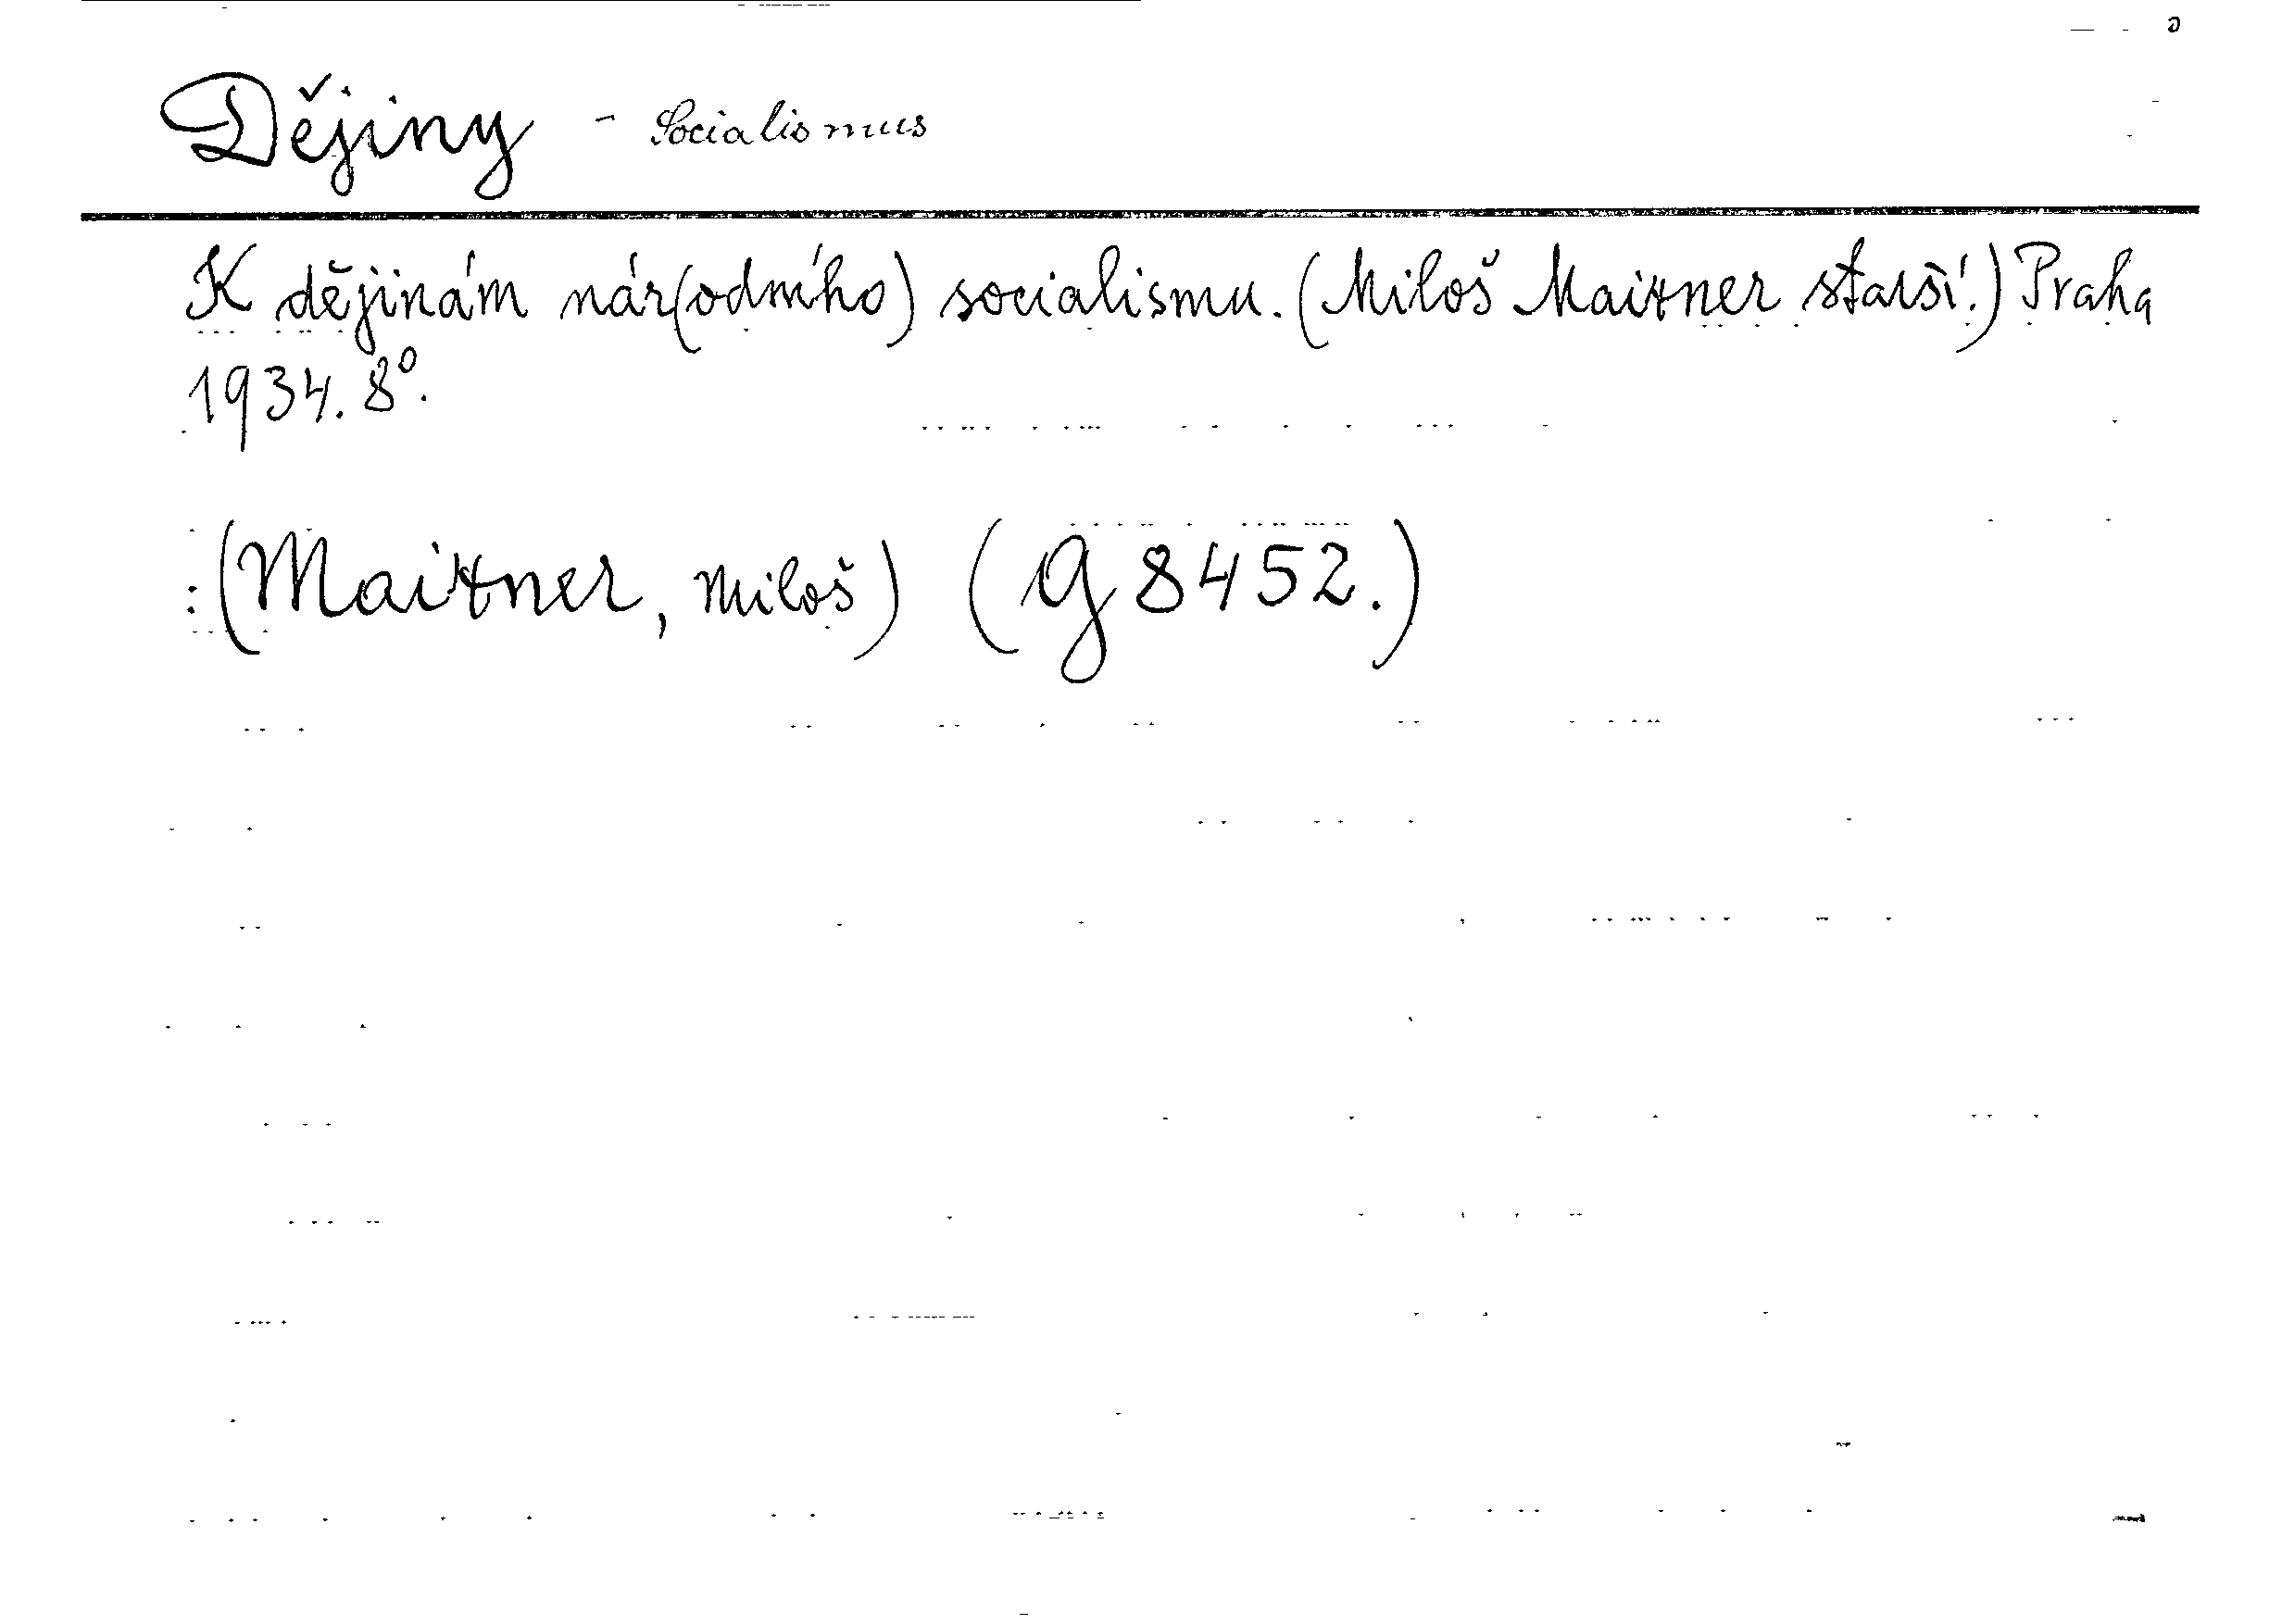 Dějiny - Socialismus
K dějinám nár(odního) socialismu. (Miloš Maixner starší.) Praha
1934. 8°.
:(Maixner, Miloš) (G 8452.)